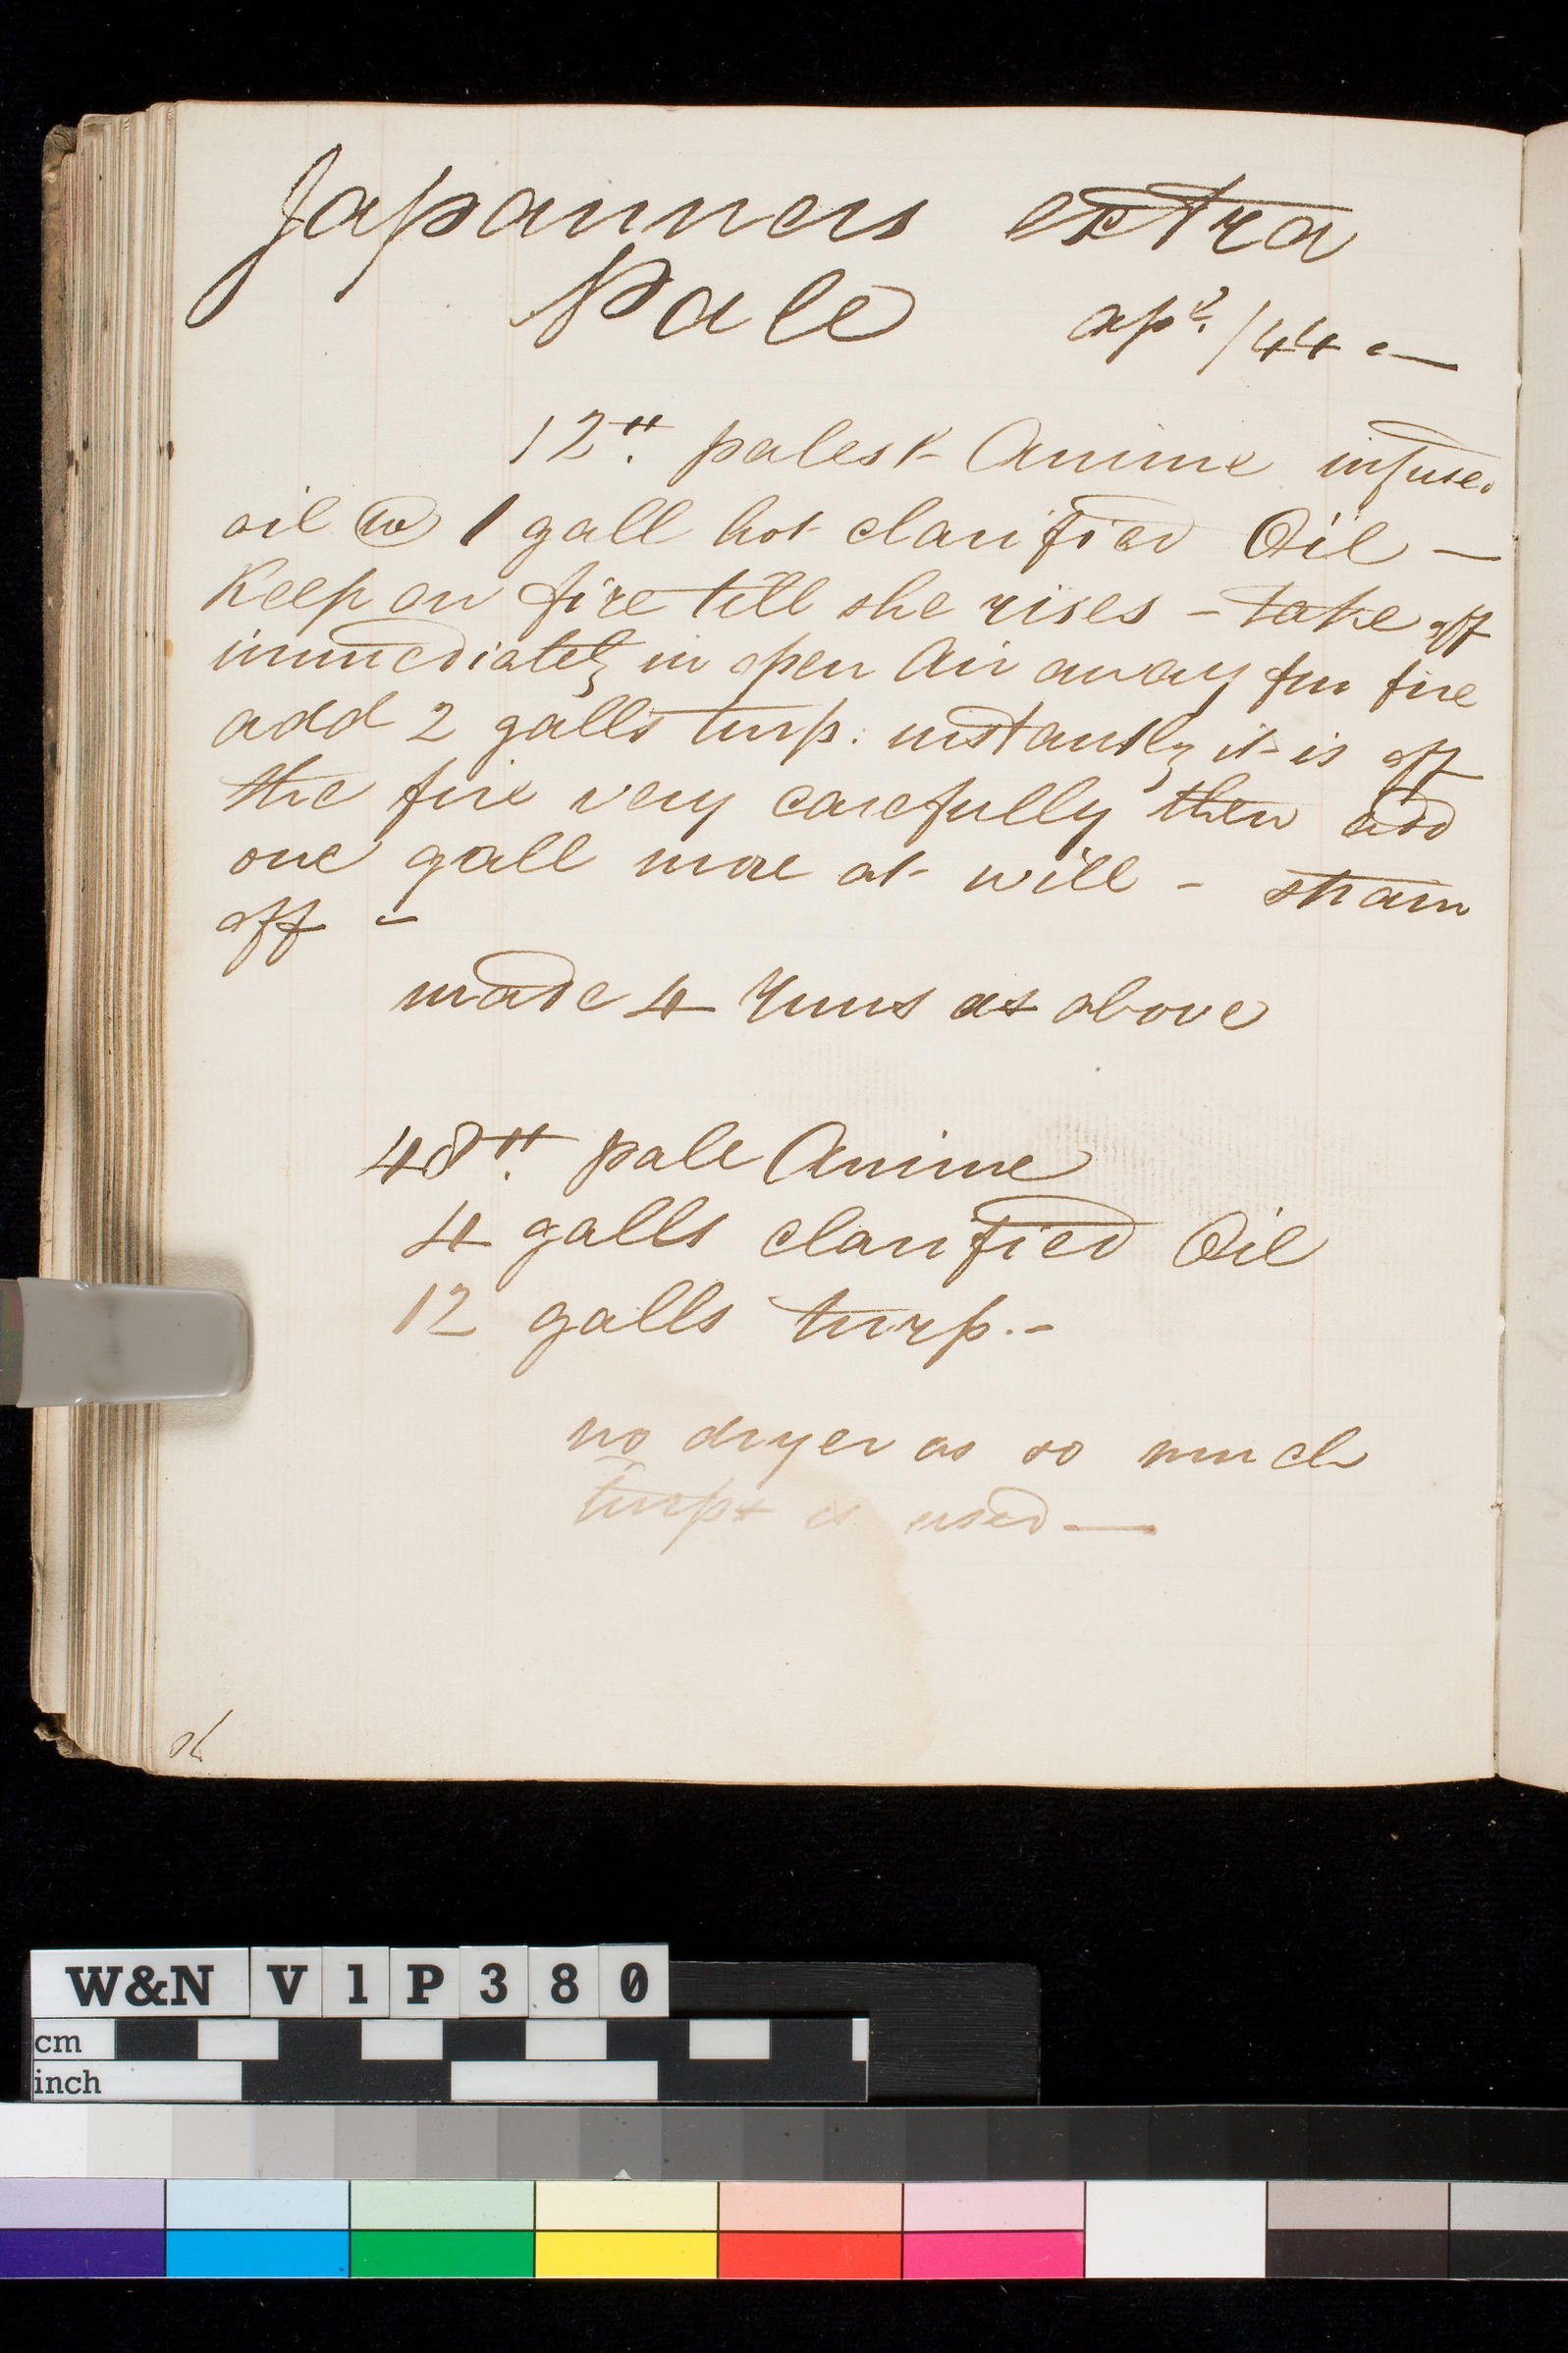 Japanners extra
Pale apl. /44 —
12lb. palest Anime infused
oil @ 1 gall hot clarified Oil —
Keep on fire till she rises – take off
immediately in open Air away fm fire
add 2 galls turp: instantly it is off
the fire very carefully then add
one gall more at will – strain
off –
made 4 runs as above
48lb. pale Anime
4 galls clarified Oil
12 galls turp.–
no dryer as so much
turps is used —
W&N V1P380
cm
inch